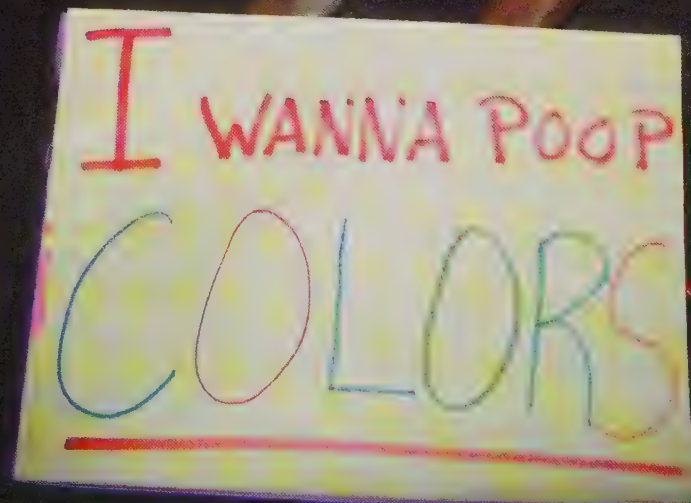 I WANNA POOP
COLORS